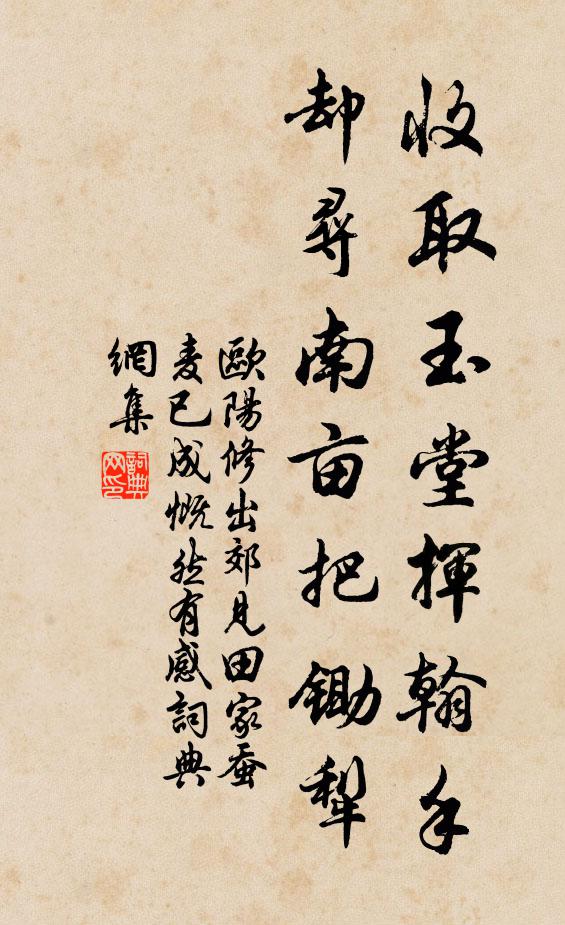 收取玉堂揮翰手
却尋南亩把鋤犁
歐陽修出郊見田家蚕
麦已成慨然有感詞典
網集
詞典
网印